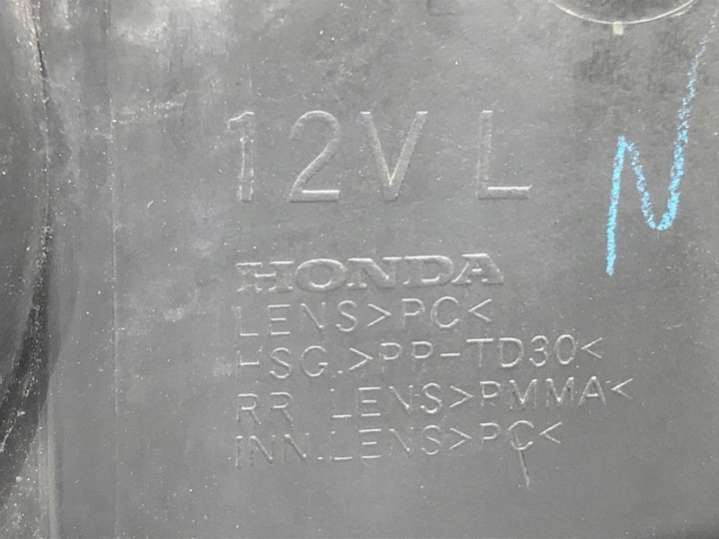 12V L
N
HONDA
LENS>PC<
HSG.>PP-TD30<
RR LENS>PMMA<
INN.LENS>PC<